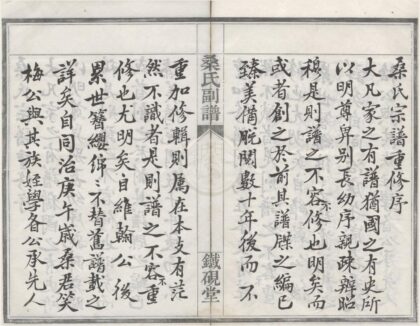 桑氏宗譜重修序
大凡家之有譜猶國之有史所
以明尊卑别長幼序親疎辨昭
穆是則譜之不容不修也明矣而
或者創之於前其譜牒之編已
臻美備脱閱數十年後而不
桑氏副譜
鐵硯堂
重加修輯則属在本支有茫
然不識者是則譜之不容不重
修也尤明矣自維翰公後
累世簪纓綿綿不替舊譜載之
詳矣自同治庚午歲桑君笑
梅公與其族姪學各公承先人